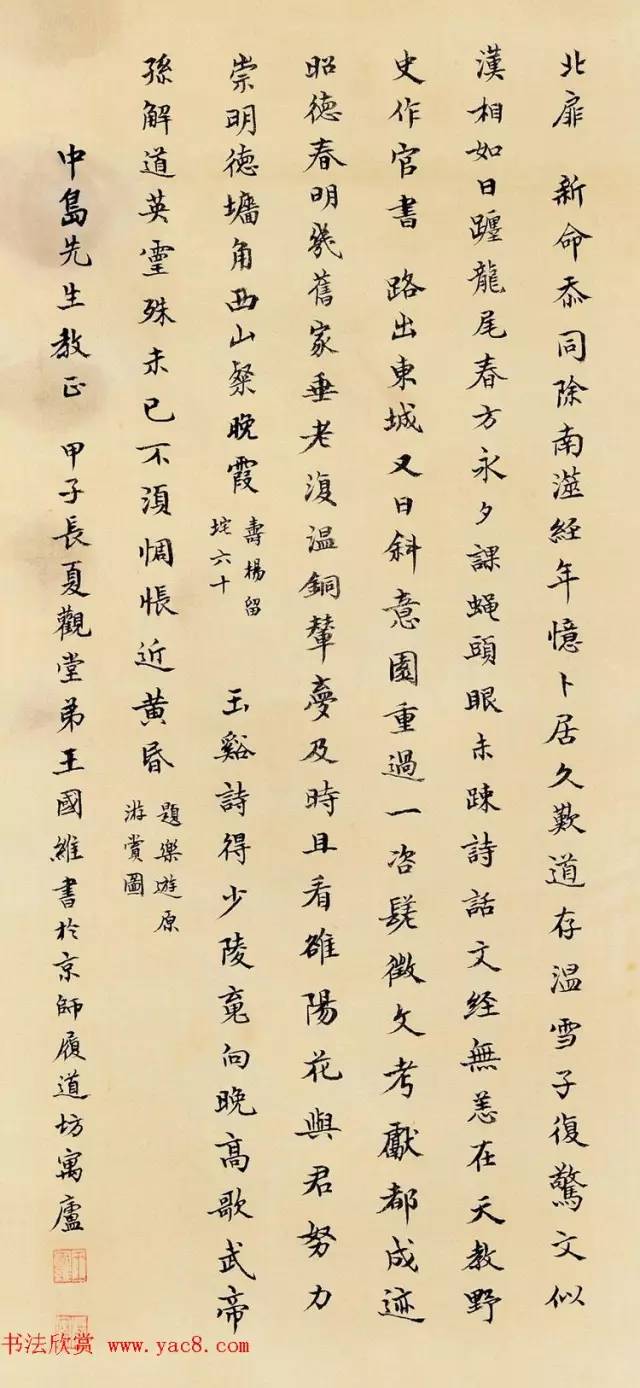 北扉　新命忝同除南澨經年憶卜居久歎道存溫雪子復驚文似
漢相如日躔龍尾春方永夕課蝇頭眼未疎詩話文经無恙在天教野
史作官書　路出東城又日斜意園重過一咨嗟徵文考獻都成迹
昭德春明幾舊家垂老復溫銅輦夢及時且看雒陽花與君努力
崇明德墻角西山粲晚霞
壽楊留
垞六十
玉谿詩得少陵䰟向晚高歌武帝
孫解道英靈殊未已不須惆悵近黄昏
題樂遊原
游賞圖
中島先生教正　甲子長夏觀堂弟王國維書於京師履道坊寓廬
书法欣赏 www.yac8.com